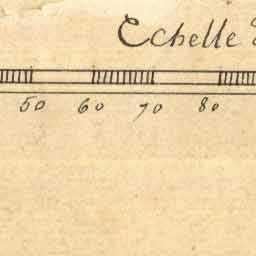 Echelle
50 60 70 80